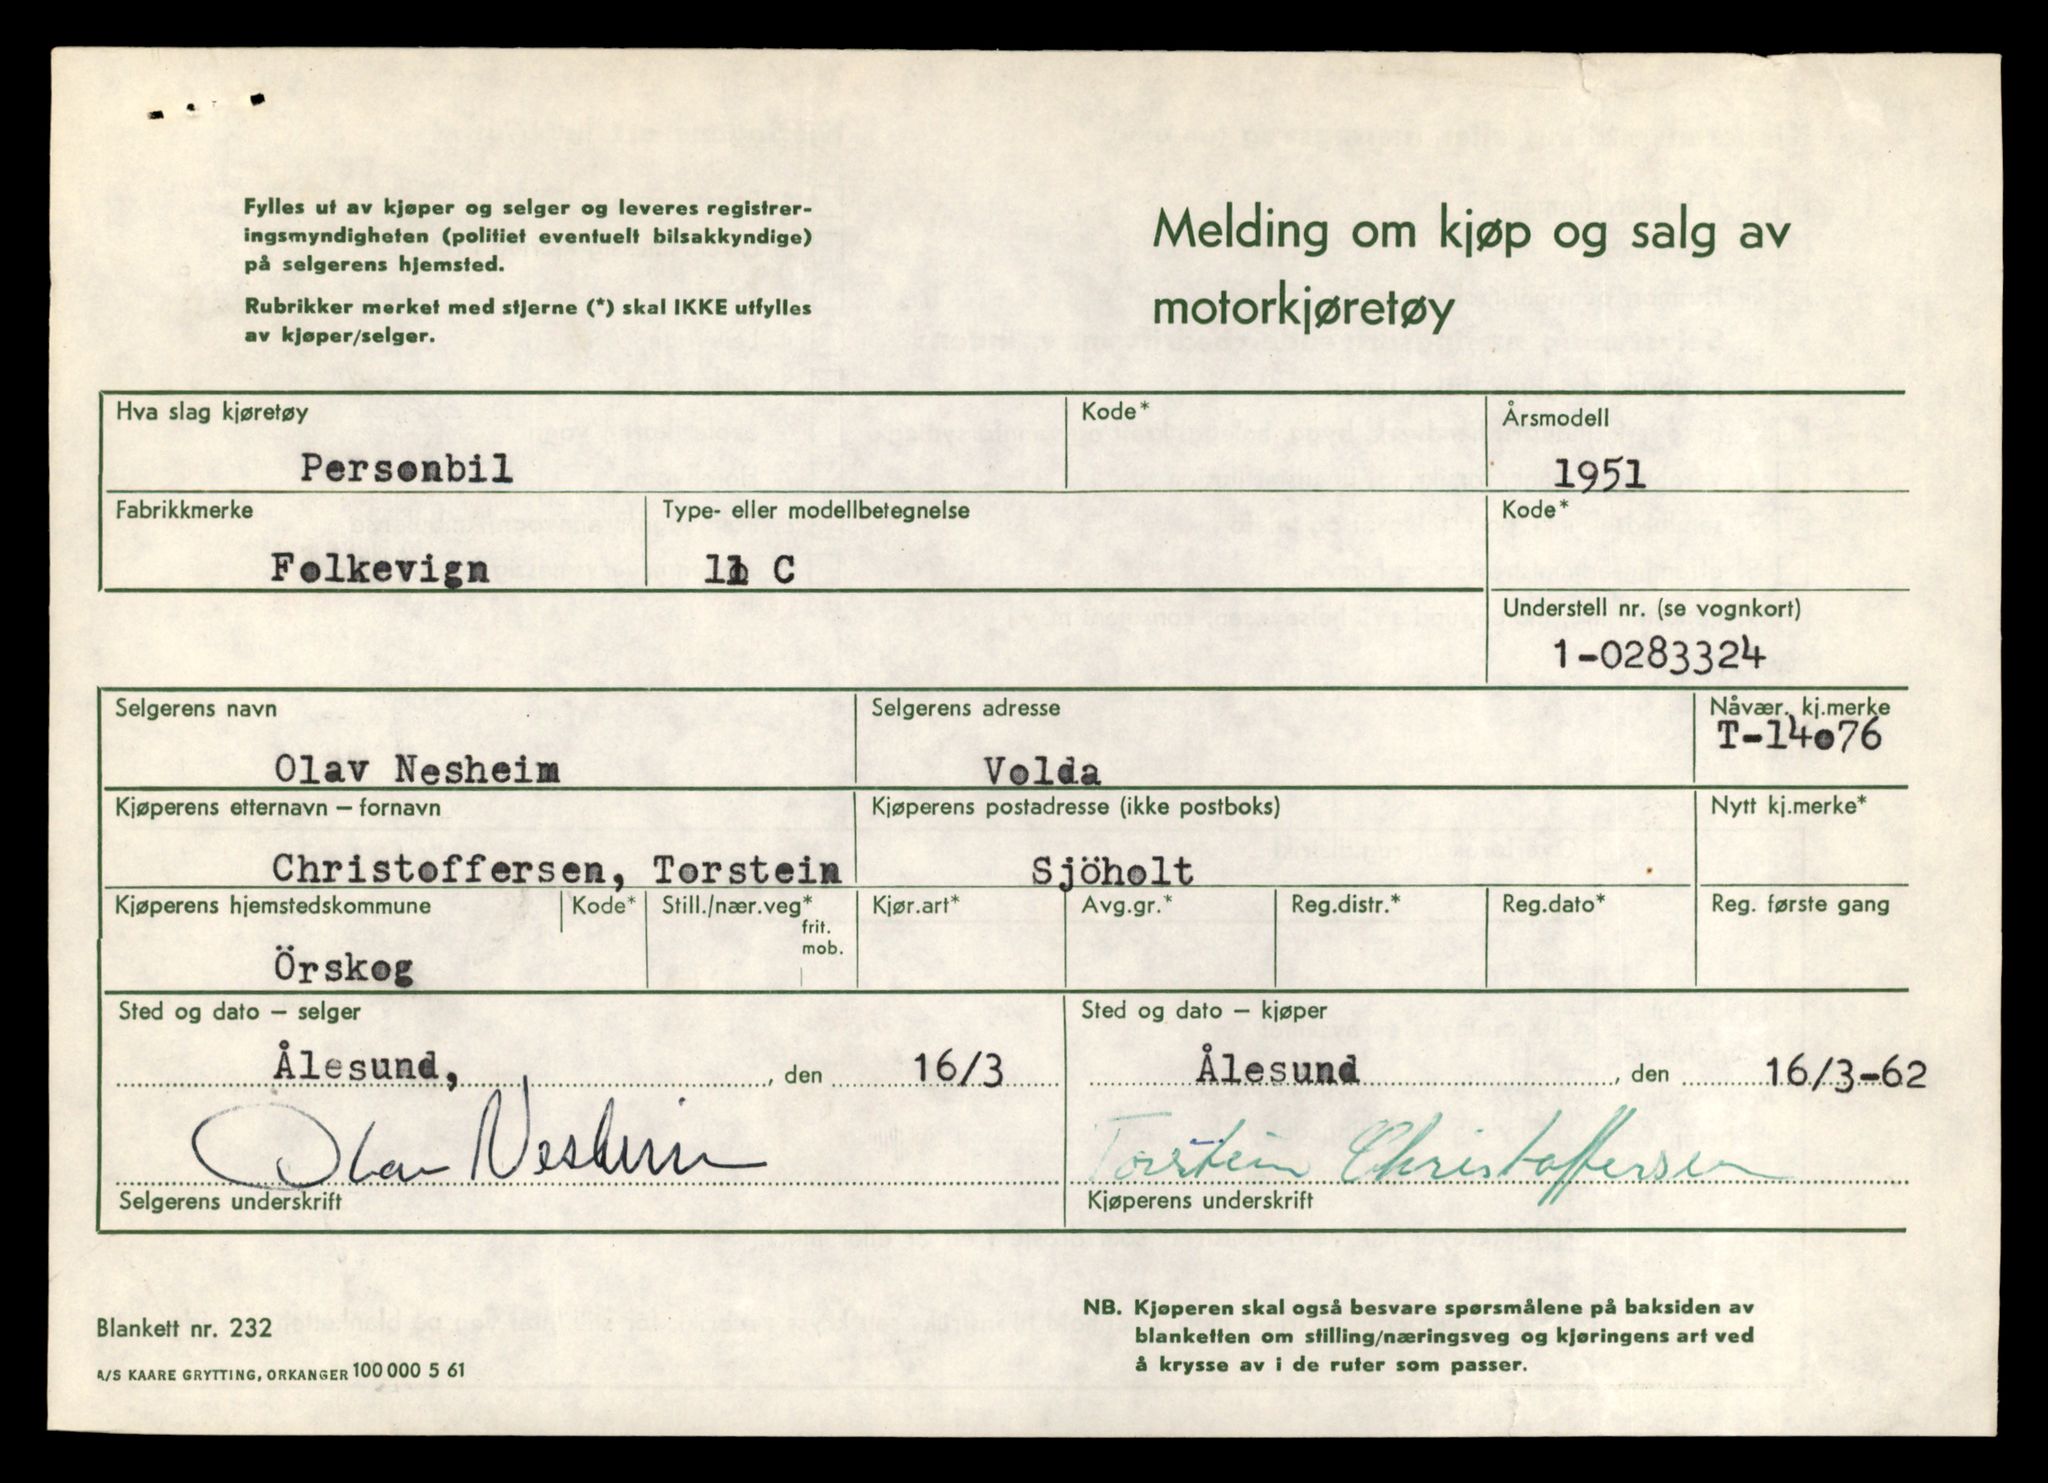 Fylles ut av kjøper og selger og leveres registrer-
ingsmyndigheten (politiet eventuelt bilsakkyndige)
på selgerens hjemsted.
Rubrikker merket med stjerne (*) skal IKKE utfylles
av kjøper/selger.
Melding om kjøp og salg av
motorkjøretøy
Hva slag kjøretøy
Kode*
Årsmodell
Personbil
1951
Fabrikkmerke
Type- eller modellbetegnelse
Kode*
Folkevign
11 C
Understell nr. (se vognkort)
1-0283324
Selgerens navn
Selgerens adresse
Nåvær. kj.merke
Olav Nesheim
Volda
T-14076
Kjøperens etternavn – fornavn
Kjøperens postadresse (ikke postboks)
Nytt kj.merke*
Christoffersen, Torstein
Sjöholt
Kjøperens hjemstedskommune
Kode*
Still./nær.veg*
frit.
mob.
Kjør.art*
Avg.gr.*
Reg.distr.*
Reg.dato*
Reg. første gang
Örskog
Sted og dato – selger
Sted og dato – kjøper
Ålesund, , den 16/3
Ålesund , den 16/3-62
Olav Nesheim
Torstein Christoffersen
Selgerens underskrift
Kjøperens underskrift
Blankett nr. 232
A/S KAARE GRYTTING, ORKANGER 100 000 5 61
NB. Kjøperen skal også besvare spørsmålene på baksiden av
blanketten om stilling/næringsveg og kjøringens art ved
å krysse av i de ruter som passer.